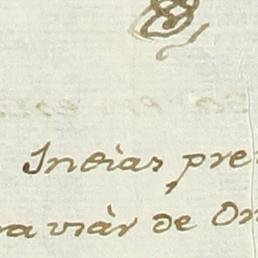 Ineias pre
ra viàr de On